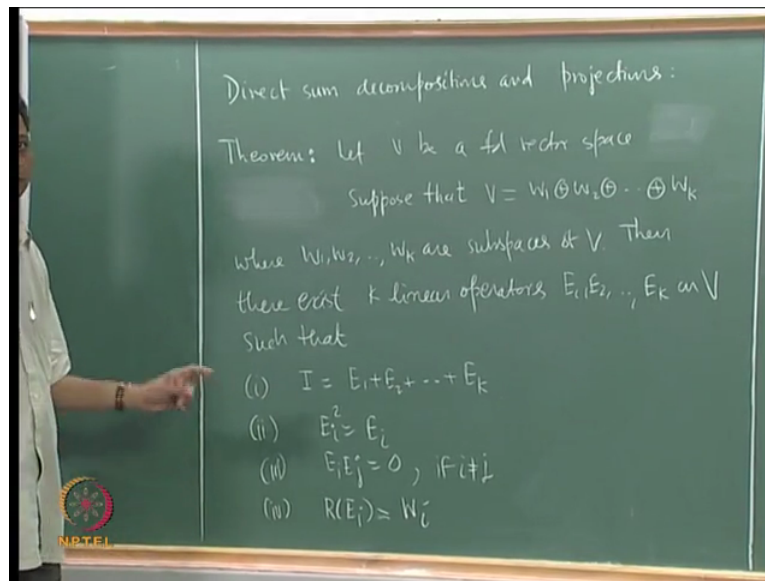 Direct sum decompositions and projections:
Theorem: Let V be a fd vector space
Suppose that V = W₁ ⊕ W₂ ⊕ ·· ⊕ W_K
where W₁, W₂, .., W_K are subspaces of V. Then
there exist K linear operators E₁, E₂, .., E_K on V
such that
(i) I = E₁ + E₂ + ··· + E_K
(ii) E_i² = E_i
(iii) E_i E_j = 0, if i ≠ j
(iv) R(E_i) = W_i
NPTEL